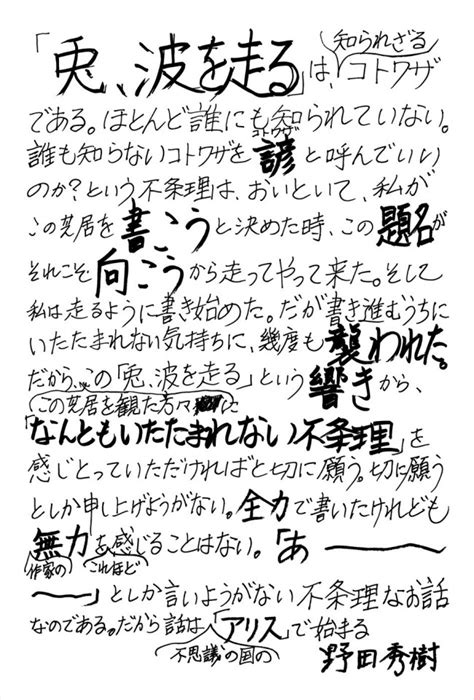 「兎、波を走る」は、知られざるコトワザ
である。ほとんど誰にも知られていない。
誰も知らないコトワザを諺コトワザと呼んでいい
のか?という不条理は、おいといて、私が
この芝居を書こうと決めた時、この題名が
それこそ向こうから走ってやって来た。そして
私は走るように書き始めた。だが書き進むうちに
いたたまれない気持ちに、幾度も襲われた。
だから、この「兎、波を走る」という響きから、
この芝居を観た方々に
「なんともいたたまれない不条理」を
感じとっていただければと切に願う。切に願う
としか申し上げようがない。全力で書いたけれども
作家の無力をこれほど感じることはない。「あ――
――」としか言いようがない不条理なお話
なのである。だから話は不思議の国の「アリス」で始まる
野田秀樹